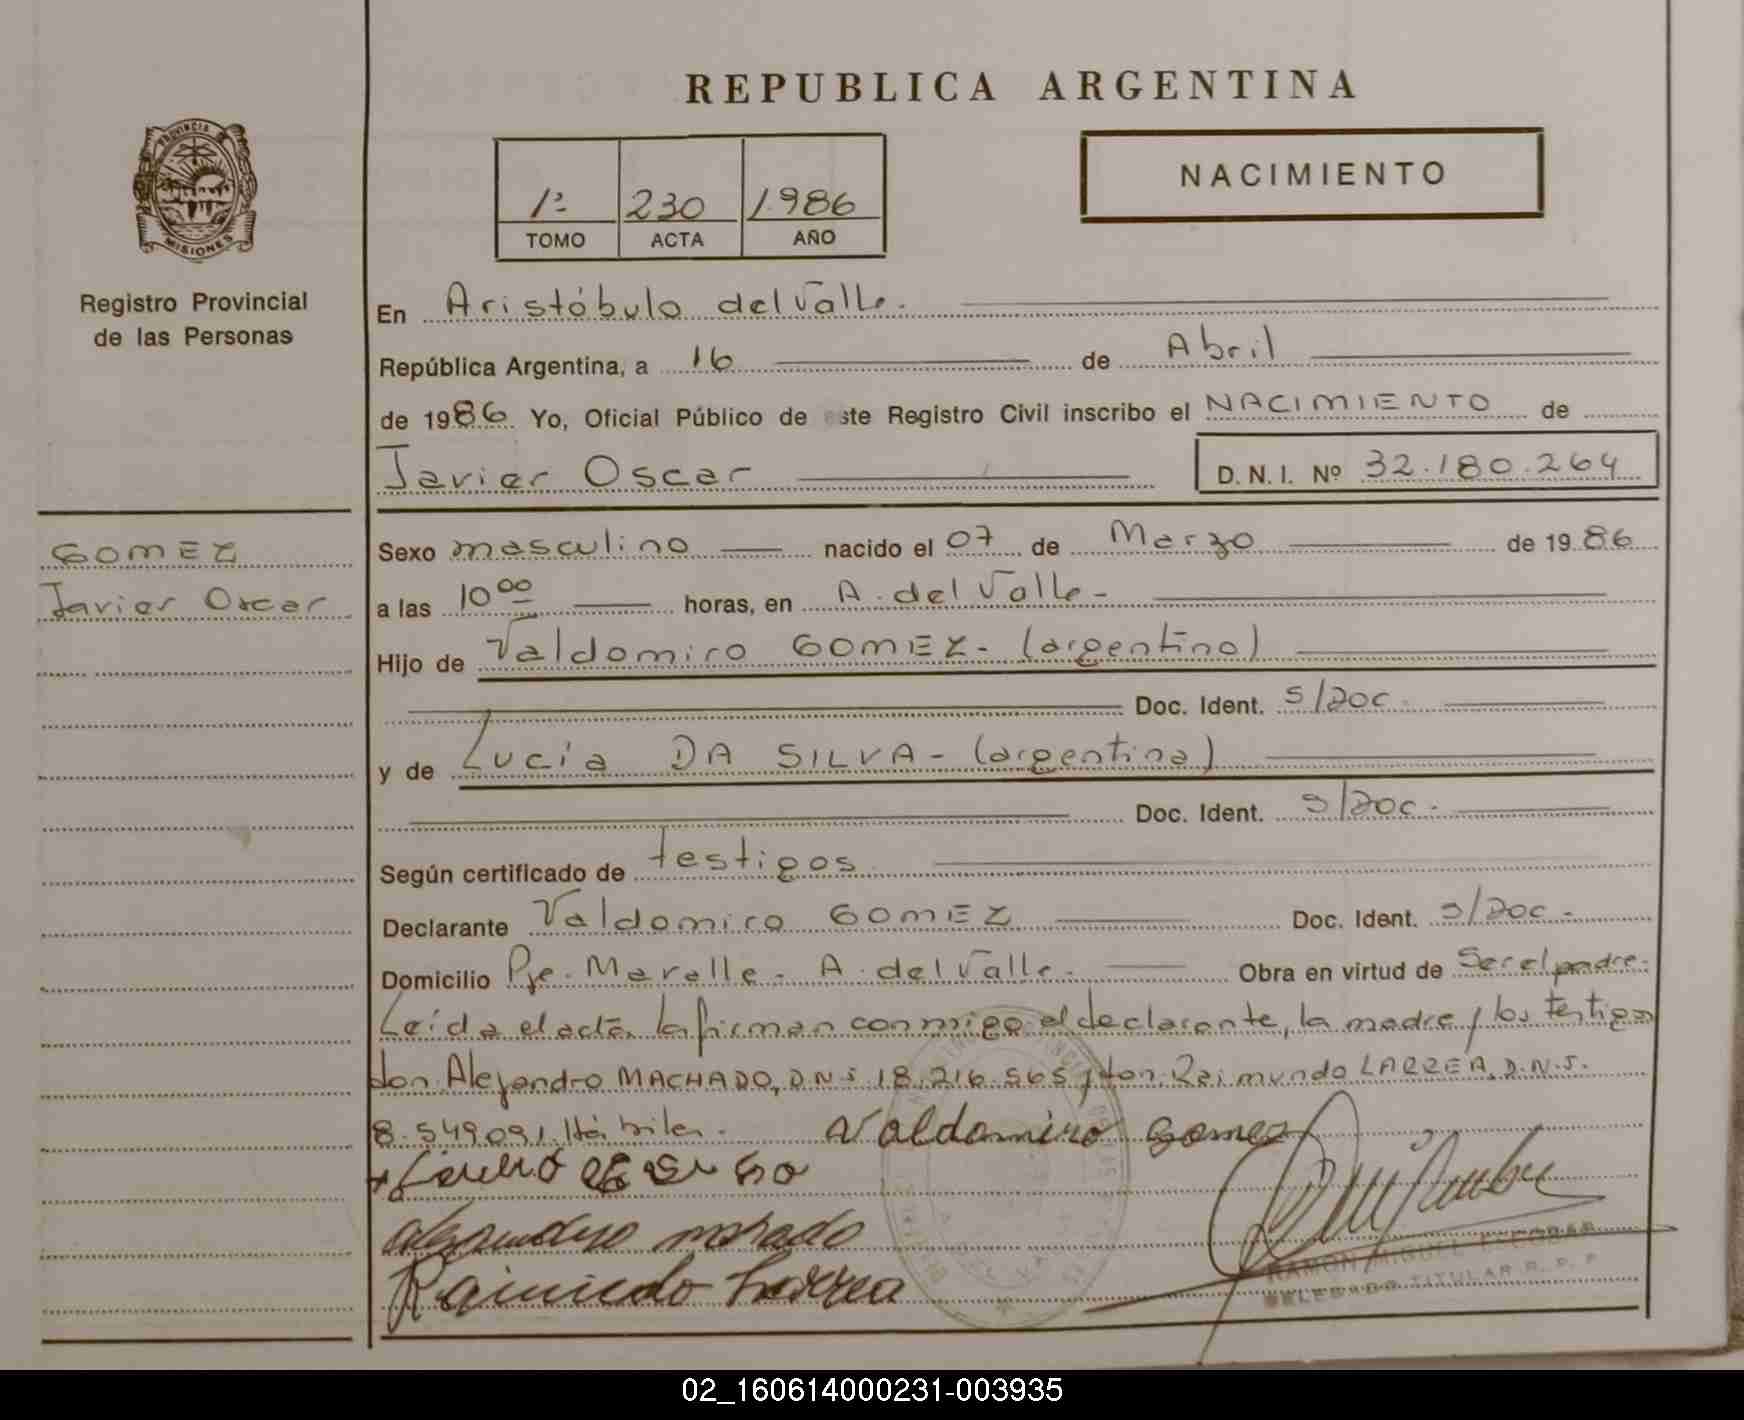 REPUBLICA ARGENTINA
PROVINCIA
MISIONES
Registro Provincial
de las Personas
1º 230 1986
TOMO ACTA AÑO
NACIMIENTO
En Aristóbulo del Valle.
República Argentina, a 16 de Abril
de 1986 Yo, Oficial Público de este Registro Civil inscribo el NACIMIENTO de
Javier Oscar D.N.I. Nº 32.180.264
GOMEZ
Javier Oscar
Sexo masculino nacido el 07 de Marzo de 1986
a las 10 00 horas, en A. del Valle-
Hijo de Valdomiro GOMEZ- (argentino)
Doc. Ident. S/Doc.
y de Lucía DA SILVA- (argentina)
Doc. Ident. S/Doc.
Según certificado de testigos
Declarante Valdomiro GOMEZ Doc. Ident. S/Doc.-
Domicilio Pje. Maralle- A. del Valle.- Obra en virtud de Ser el padre-
Leída el acta, la firman conmigo el declarante, la madre y los testigos
don Alejandro MACHADO, D.N.I 18.216.565 y don Raimundo LARREA, D.N.I.
8.549.091 Hábiles.-
Valdomiro gomez
Raimundo Larrea
RAMON MIGUEL ESCOBAR
DELEGADO TITULAR R. P. P
02_160614000231-003935